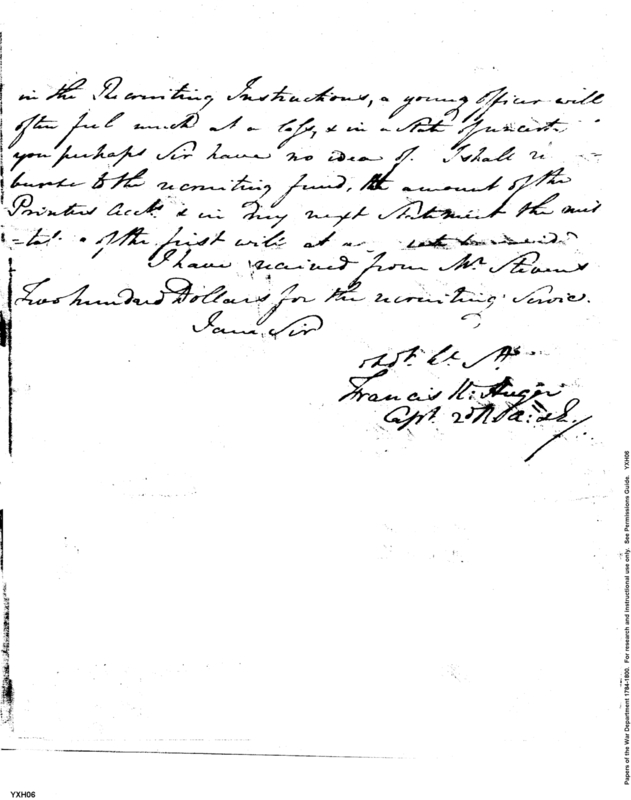 in the Recruiting Instructions, a young Officer will
often feel much at a loss, & in a State of
you perhaps Sir have no idea of. I shall re
burse to the recruiting fund, the amount of the
Printers Acct. & in my next Statement the mis
=ta of the first will
I have received from Mr. Stevens
Two hundred Dollars for the recruiting Service.
I am Sir
obdt.
Francis K: Huger
Capt. 2d R A: & E
Papers of the War Department 1784-1800. For research and instructional use only. See Permissions Guide. YXH06
YXH06